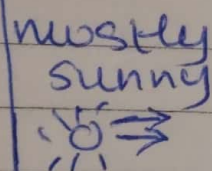 mostly
sunny